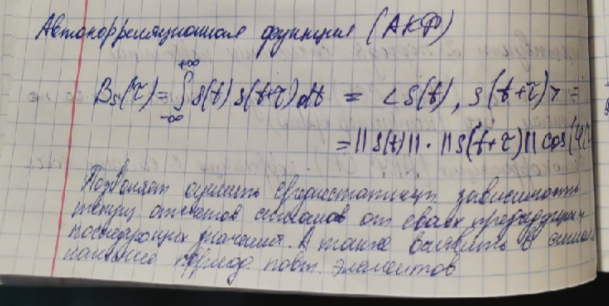 Автокорреляционная функция (АКФ)
Bs(τ) = ∫ s(t) s(t+τ) dt = < s(t), s(t+τ) > =
+∞
-∞
= || s(t) || · || s(t+τ) || cos(φ
Позволяет оценить зависимость
между отсчетов сигналов от своих предыдущих
последующих значений. А также выявить в сигнале
наличие период. повт. элементов